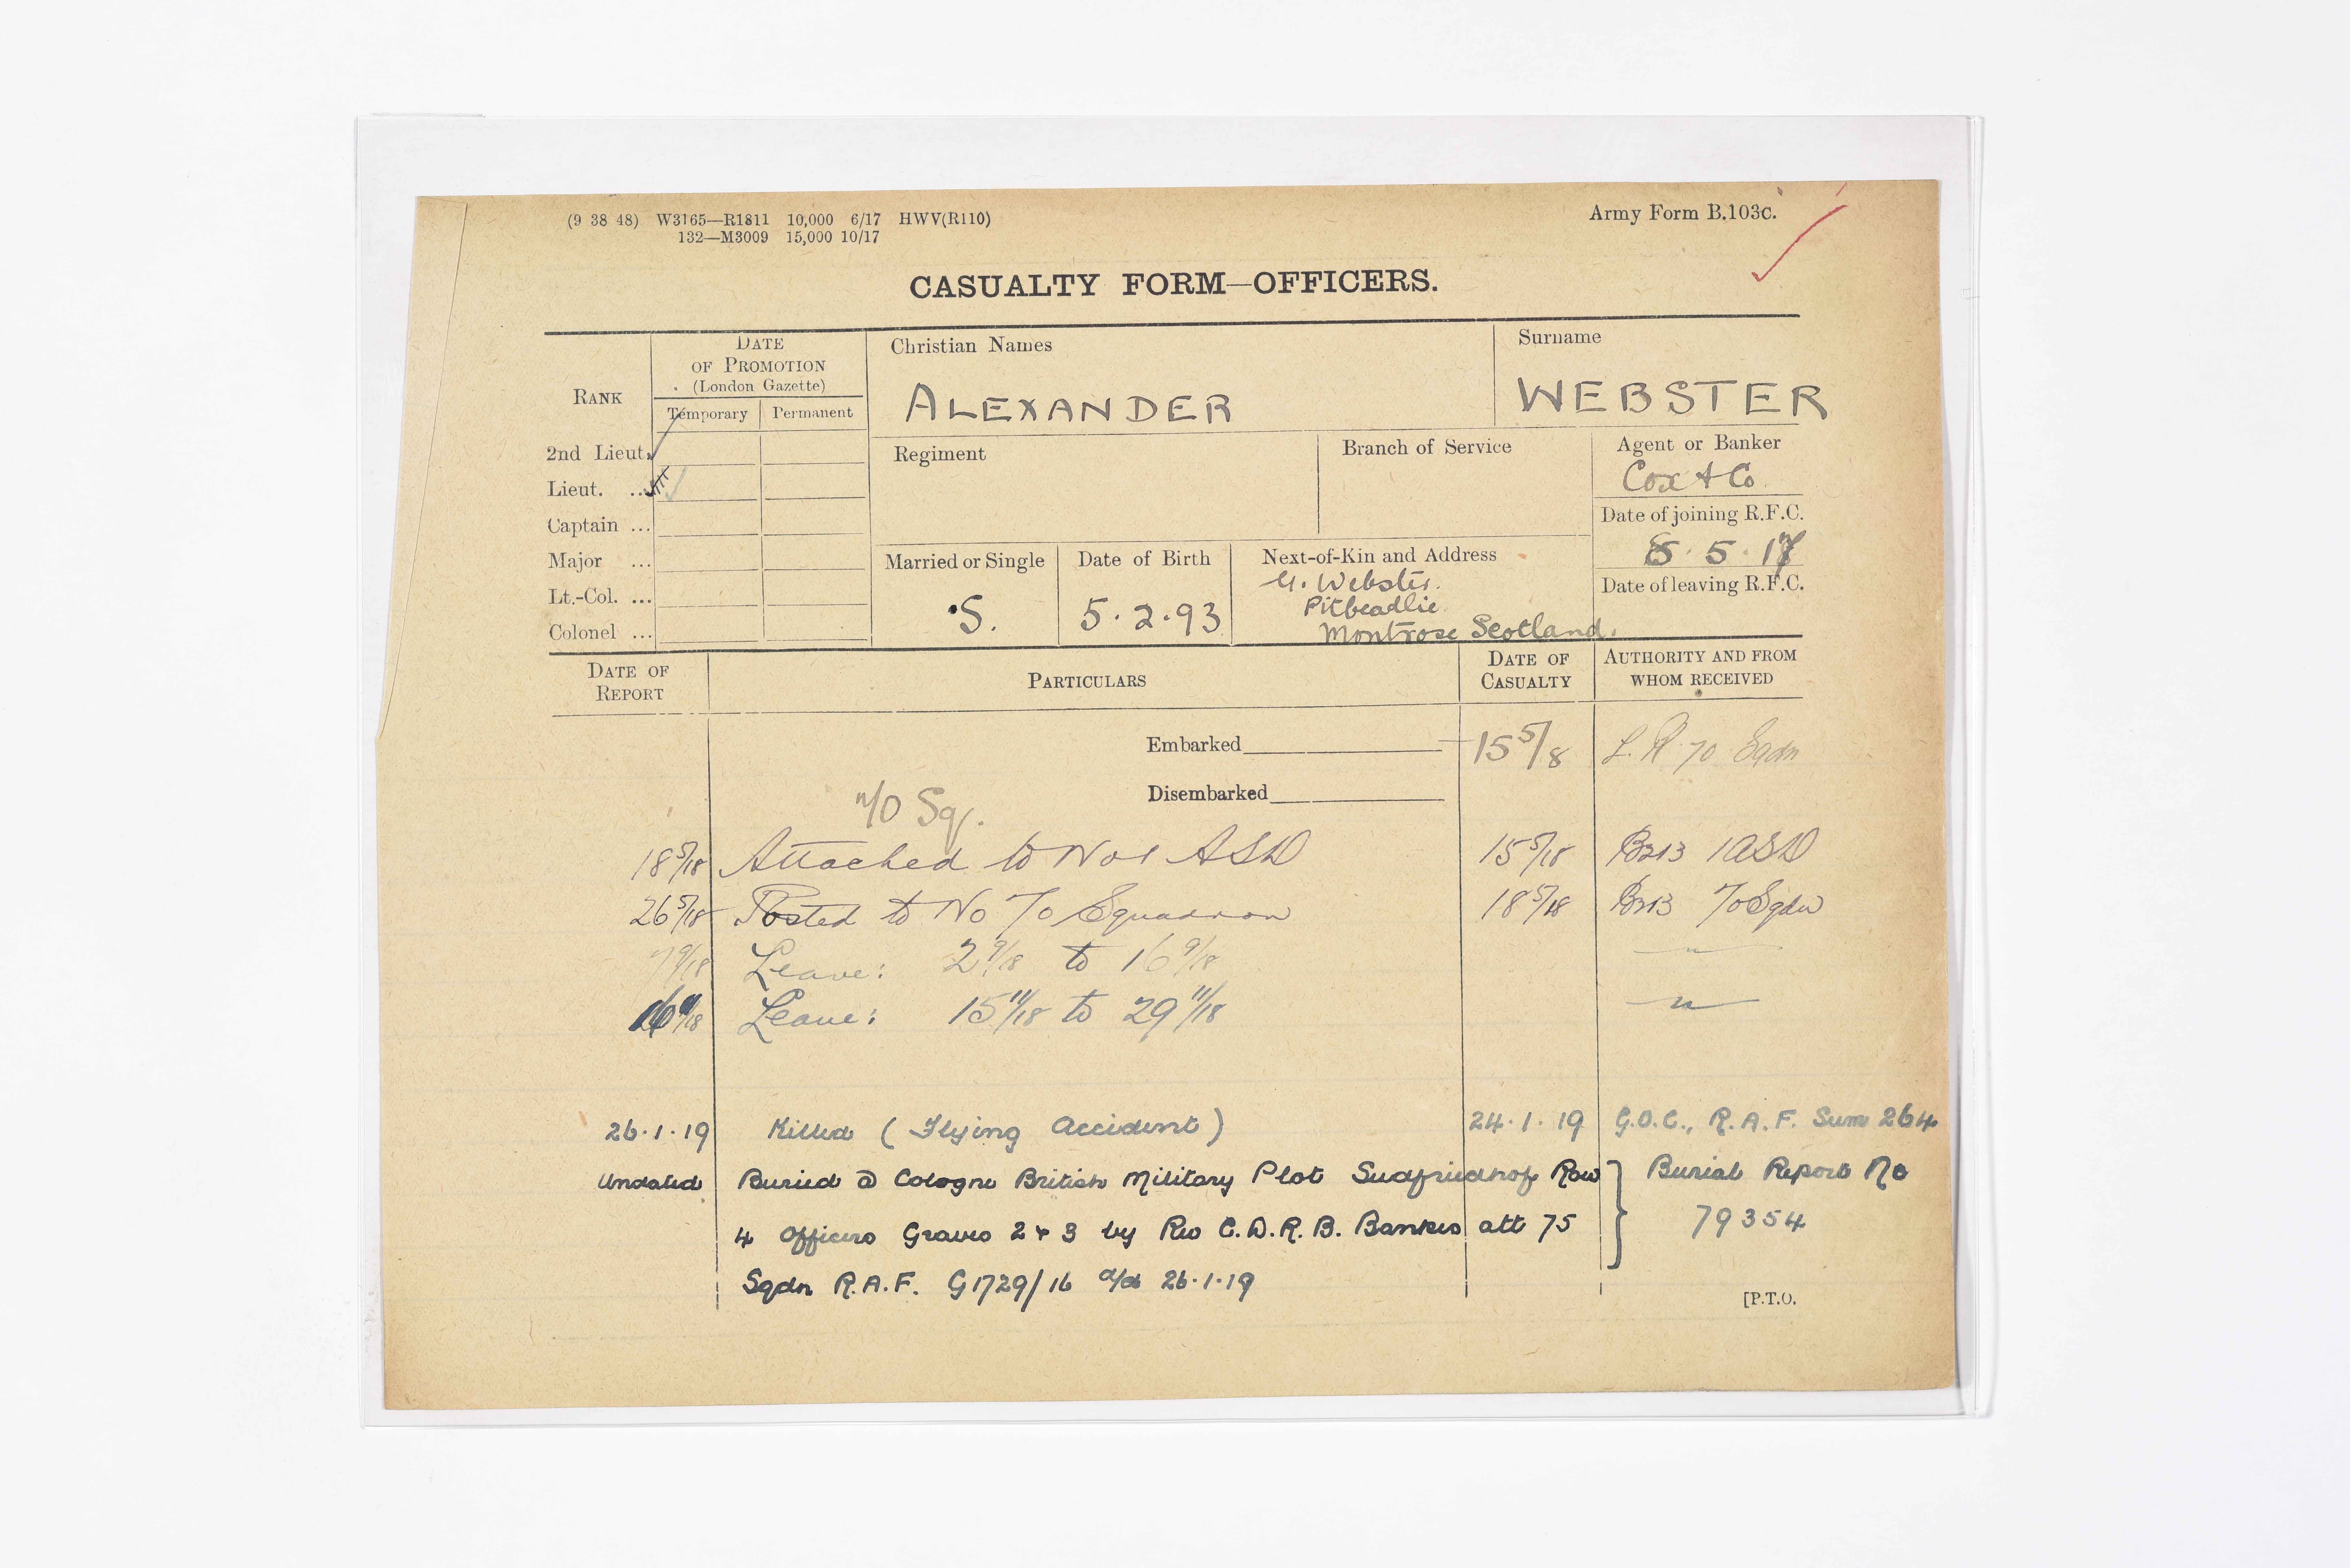 (9 38 48) W3165—R1811 10,000 6/17 HWV(R110)
132—M3009 15,000 10/17
Army Form B.103c.
CASUALTY FORM—OFFICERS.
RANK
DATE OF PROMOTION
(London Gazette)
Temporary Permanent
2nd Lieut.
Lieut. ...
Captain ...
Major ...
Lt.-Col. ...
Colonel ...
Christian Names
ALEXANDER
Surname
WEBSTER
Regiment
Branch of Service
Agent or Banker
Cox & Co.
Date of joining R.F.C.
5. 17
Date of leaving R.F.C.
Married or Single
S.
Date of Birth
5.2.93
Next-of-Kin and Address
Webster.
Pitbeadlie
Montrose Scotland.
DATE OF REPORT
PARTICULARS
DATE OF CASUALTY
AUTHORITY AND FROM WHOM RECEIVED
Embarked 15 5/8 L.R. 70 Sqdn
Disembarked
70 Sq.
18 5/18 Attached to No 1 ASD 15 5/18 B213 1 ASD
26 5/18 Posted to No 70 Squadron 18 5/18 B213 70 Sqdn
7 9/18 Leave: 2 9/18 to 16 9/18 — " —
16 11/18 Leave: 15 11/18 to 29 11/18 — " —
26.1.19 Killed (Flying Accident) 24.1.19 G.O.C., R.A.F. Sum 264
Undated Buried @ Cologne British Military Plot Sudfriedhof Row } Burial Report No
4 Officers Graves 2 & 3 by Rev C.D.R.B. Bankes att 75 79354
Sqdn R.A.F. G1729/16 d/d 26.1.19
[P.T.O.